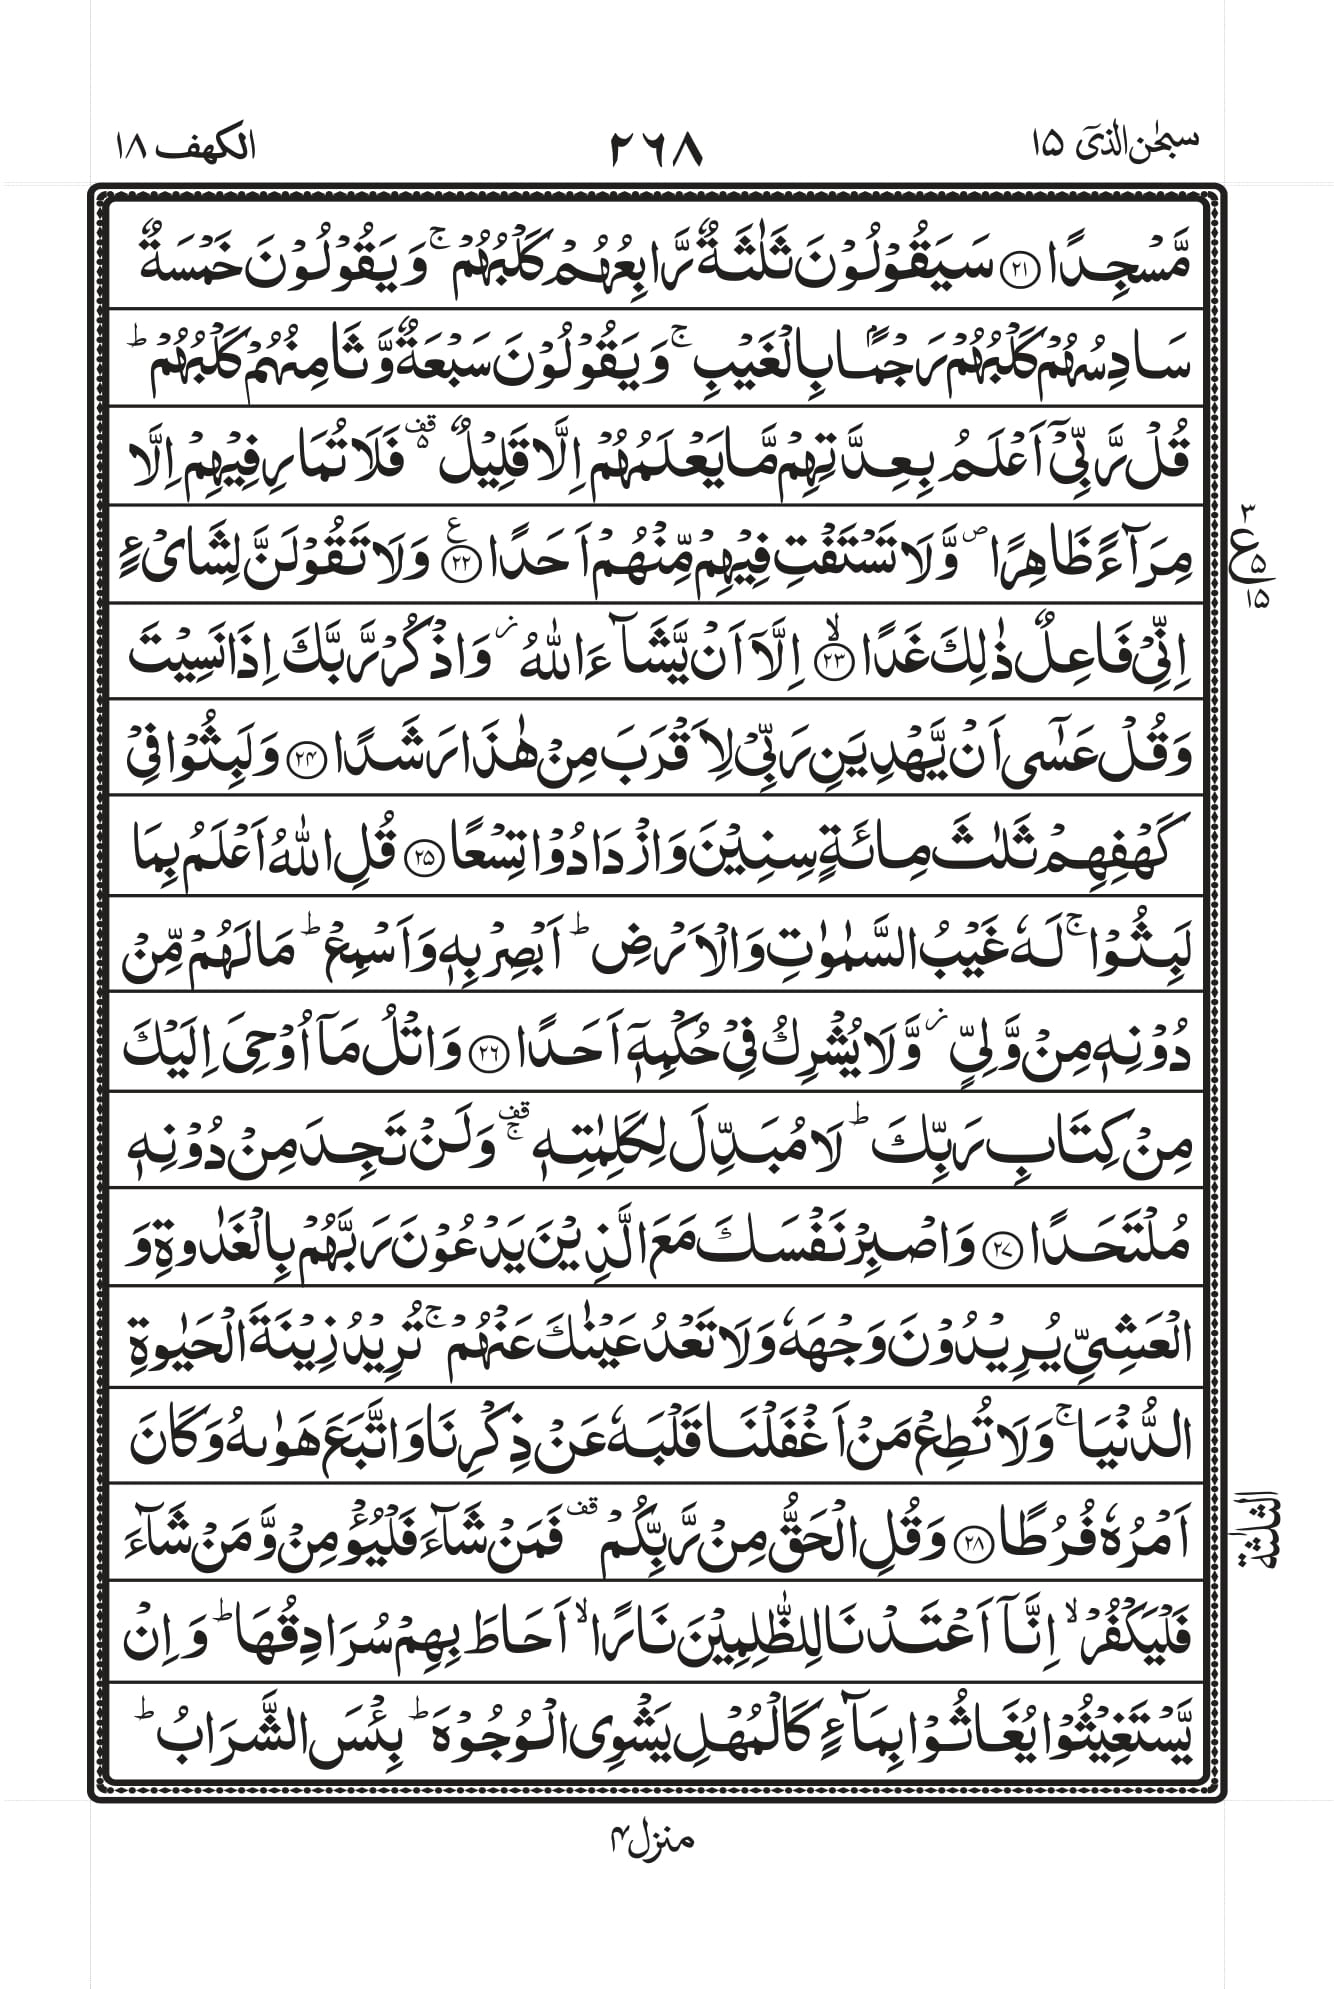 سبحٰن الذیٓ ۱۵
۲٦۸
الکهف ۱۸
مَّسۡجِدًا ﴿۲۱﴾ سَیَقُوۡلُوۡنَ ثَلٰثَۃٌ رَّابِعُهُمۡ کَلۡبُهُمۡ ۚ وَیَقُوۡلُوۡنَ خَمۡسَۃٌ
سَادِسُهُمۡ کَلۡبُهُمۡ رَجۡمًۢا بِالۡغَیۡبِ ۚ وَیَقُوۡلُوۡنَ سَبۡعَۃٌ وَّثَامِنُهُمۡ کَلۡبُهُمۡ ؕ
قُلۡ رَّبِّیۡۤ اَعۡلَمُ بِعِدَّتِهِمۡ مَّا یَعۡلَمُهُمۡ اِلَّا قَلِیۡلٌ ۟۬ قف ۵ فَلَا تُمَارِ فِیۡهِمۡ اِلَّا
مِرَآءً ظَاهِرًا ۪ وَّلَا تَسۡتَفۡتِ فِیۡهِمۡ مِّنۡهُمۡ اَحَدًا ﴿۲۲﴾ ع وَلَا تَقُوۡلَنَّ لِشَایۡءٍ
۳
ع
۵
۱۵
اِنِّیۡ فَاعِلٌ ذٰلِکَ غَدًا ﴿ۙ۲۳﴾ اِلَّاۤ اَنۡ یَّشَآءَ اللّٰهُ ۫ وَاذۡکُرۡ رَّبَّکَ اِذَا نَسِیۡتَ
وَقُلۡ عَسٰۤی اَنۡ یَّهۡدِیَنِ رَبِّیۡ لِاَقۡرَبَ مِنۡ هٰذَا رَشَدًا ﴿۲۴﴾ وَلَبِثُوۡا فِیۡ
کَهۡفِهِمۡ ثَلٰثَ مِائَۃٍ سِنِیۡنَ وَازۡدَادُوۡا تِسۡعًا ﴿۲۵﴾ قُلِ اللّٰهُ اَعۡلَمُ بِمَا
لَبِثُوۡا ۚ لَهٗ غَیۡبُ السَّمٰوٰتِ وَالۡاَرۡضِ ؕ اَبۡصِرۡ بِهٖ وَاَسۡمِعۡ ؕ مَا لَهُمۡ مِّنۡ
دُوۡنِهٖ مِنۡ وَّلِیٍّ ۫ وَّلَا یُشۡرِکُ فِیۡ حُکۡمِهٖۤ اَحَدًا ﴿۲٦﴾ وَاتۡلُ مَاۤ اُوۡحِیَ اِلَیۡکَ
مِنۡ کِتَابِ رَبِّکَ ؕ لَا مُبَدِّلَ لِکَلِمٰتِهٖ ۚ قف وَلَنۡ تَجِدَ مِنۡ دُوۡنِهٖ
مُلۡتَحَدًا ﴿۲۷﴾ وَاصۡبِرۡ نَفۡسَکَ مَعَ الَّذِیۡنَ یَدۡعُوۡنَ رَبَّهُمۡ بِالۡغَدٰوۃِ وَ
الۡعَشِیِّ یُرِیۡدُوۡنَ وَجۡهَهٗ وَلَا تَعۡدُ عَیۡنٰکَ عَنۡهُمۡ ۚ تُرِیۡدُ زِیۡنَۃَ الۡحَیٰوۃِ
الدُّنۡیَا ۚ وَلَا تُطِعۡ مَنۡ اَغۡفَلۡنَا قَلۡبَهٗ عَنۡ ذِکۡرِنَا وَاتَّبَعَ هَوٰىهُ وَکَانَ
اَمۡرُهٗ فُرُطًا ﴿۲۸﴾ وَقُلِ الۡحَقُّ مِنۡ رَّبِّکُمۡ قف فَمَنۡ شَآءَ فَلۡیُؤۡمِنۡ وَّمَنۡ شَآءَ
الثلثة
فَلۡیَکۡفُرۡ ۙ اِنَّاۤ اَعۡتَدۡنَا لِلظّٰلِمِیۡنَ نَارًا ۙ اَحَاطَ بِهِمۡ سُرَادِقُهَا ؕ وَاِنۡ
یَّسۡتَغِیۡثُوۡا یُغَاثُوۡا بِمَآءٍ کَالۡمُهۡلِ یَشۡوِی الۡوُجُوۡهَ ؕ بِئۡسَ الشَّرَابُ ؕ
منزل ۴